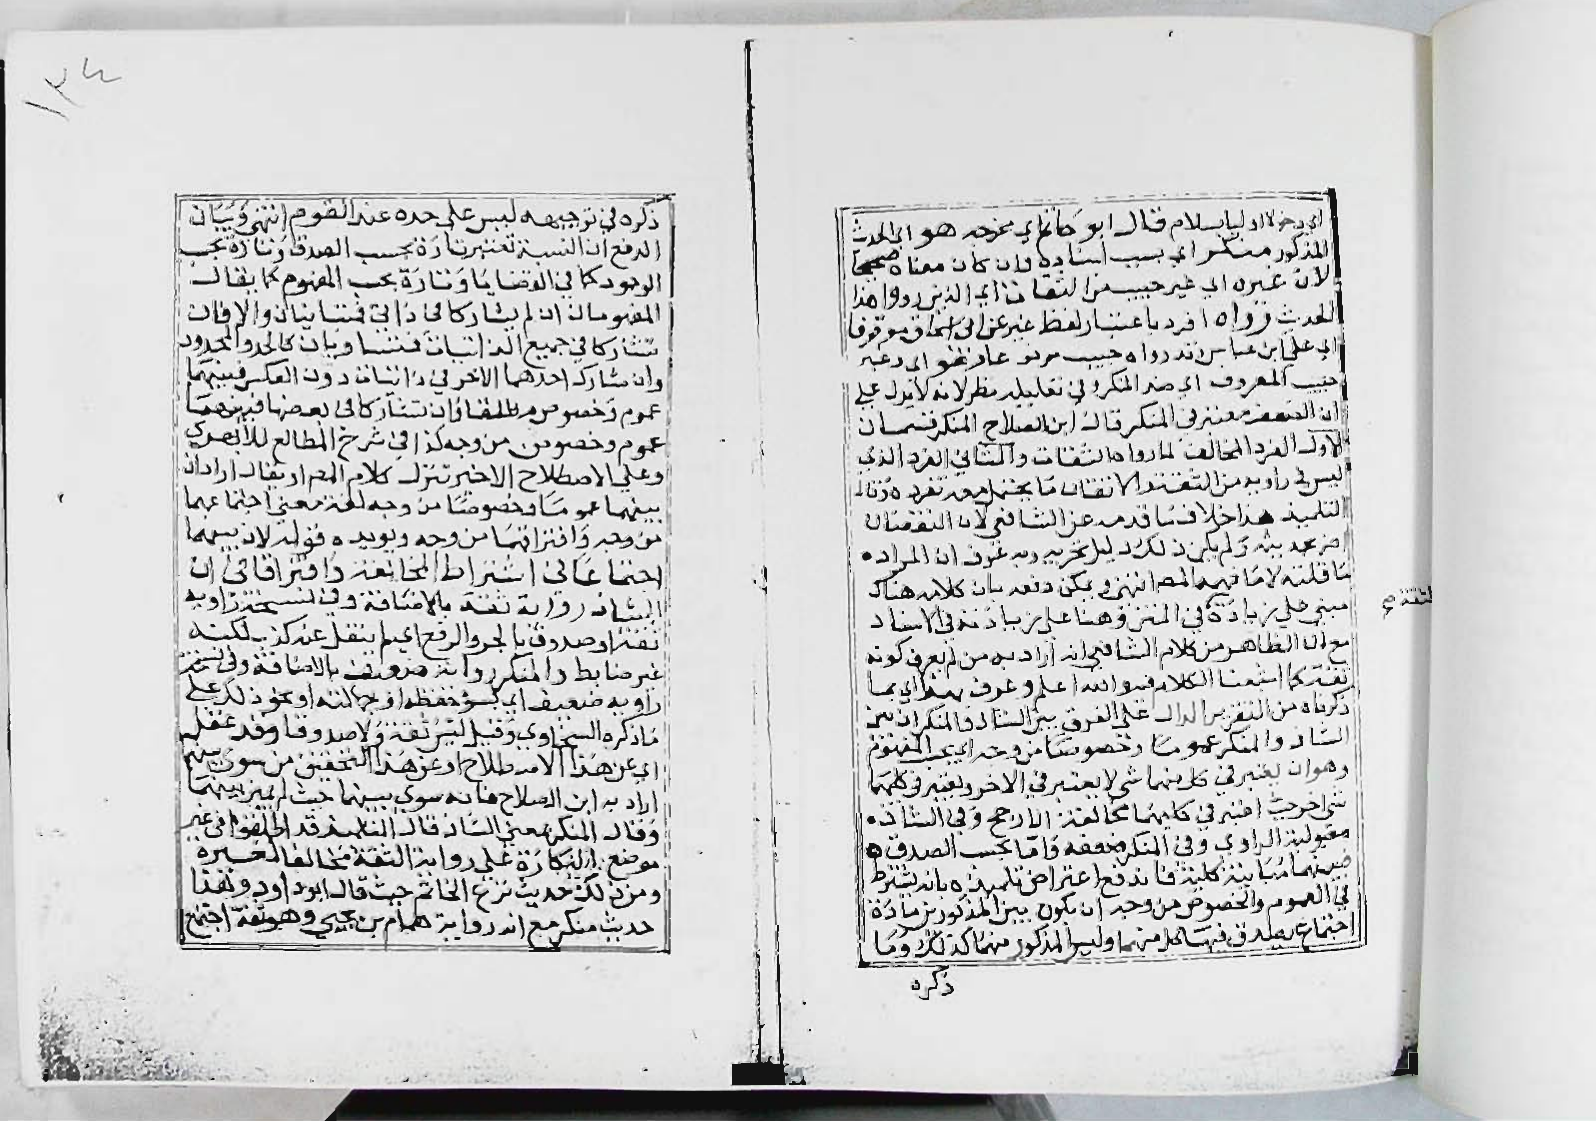 اي دخولا اوليا بسلام قال ابو حاتم اي مخرجه هو اي الحديث
المذكور منكر اي بسبب اسناده وان كان معناه صحيحا
لان غيره اي غير حبيب من الثقات اي الذين رووا هذا
الحديث رواه افرد باعتبار لفظ غير عن ابي اسحاق موقوفا
اي على ابن عباس رواه حبيب مرفوعا وهو اي وغير
حبيب المعروف اي ضد المنكر وفي تعليله نظر لانه لا يدل على
ان الضعف معتبر في المنكر قال ابن الصلاح المنكر قسمان
الاول الفرد المخالف لما رواه الثقات والثاني الفرد الذي
ليس في راويه من الثقة والاتقان ما يحتمل معه تفرده وقال
التلميذ هذا خلاف ما قدمه عن الشافعي لان النقصان
اضر بحديثه ولم يكن ذلك دليل تحريه وبه عرف ان المراد
ما قلته لا ما فهمه المصـ انتهى ويمكن دفعه بان كلامه هناك
مبني على زيادة في المتن وهنا على زيادته في الاسناد
مع ان الظاهر من كلام الشافعي انه اراد به من لم يعرف كونه
ثقة كما اشبعنا الكلام فيه والله اعلم وعرف بهذا اي بما
ذكرناه من التقرير الدال على الفرق بين الشاذ والمنكر ان بين
الشاذ والمنكر عموما وخصوصا من وجه اي بحسب المفهوم
وهو ان يعتبر في كل منهما شي لا يعتبر في الاخر ويعتبر في كليهما
شي اخر حيث اعتبر في كليهما مخالفة الارجح وفي الشاذ
مقبولية الراوي وفي المنكر ضعفه واما بحسب الصدق
فبينهما مباينة كلية فاندفع اعتراض تلميذه بانه يشترط
في العموم والخصوص من وجه ان يكون بين المذكورين مادة
اجتماع يصدق فيها كل منهما وليس المذكور منهما كذلك وما
ذكره
لثقة صح
١٢٤
ذكره في توجيهه ليس على حده عند القوم انتهى وبيان
الدفع ان النسبة تعتبر تارة بحسب الصدق وتارة بحسب
الوجود كما في القضايا وتارة بحسب المفهوم كما يقال
المفهومان ان لم يشاركا في ذاتي فمتباينان والا فان
تشاركا في جميع الذاتيات فمتساويان كالحد والمحدود
وان شارك احدهما الاخر في ذاتيات دون العكس فبينهما
عموم وخصوص مطلقا وان تشاركا في بعضها فبينهما
عموم وخصوص من وجه كذا في شرح المطالع للابهري
وعلى الاصطلاح الاخير تنزل كلام المصـ او يقال اراد ان
بينهما عموما وخصوصا من وجه لغة معنى اجتماعهما
من وجه وافتراقهما من وجه ويويده قوله لان بينهما
اجتماعا في اشتراط المخالفة وافتراقا في ان
الشاذ رواية ثقة بالاضافة وفي نسخة راويه
ثقة او صدوق بالجر والرفع اي لم ينقل عنه كذب لكنه
غير ضابط والمنكر رواية ضعيف بالاضافة وفي نسخة
راويه ضعيف اي لسوء حفظه او جهالته او نحو ذلك على
ما ذكره السخاوي وقيل ليس ثقة ولا صدوقا وقد غفل
اي عن هذا الاصطلاح او عن هذا التحقيق من سوى بينهم
اراد به ابن الصلاح فانه سوى بينهما حيث لم يميز بينهما
وقال المنكر بمعنى الشاذ قال التلميذ قد اطلقوا في غير
موضع النكارة على رواية الثقة مخالفا لغيره
ومن ذلك حديث نزع الخاتم حيث قال ابو داود وهذا
حديث منكر مع انه رواية همام بن يحيى وهو ثقة اجتمع